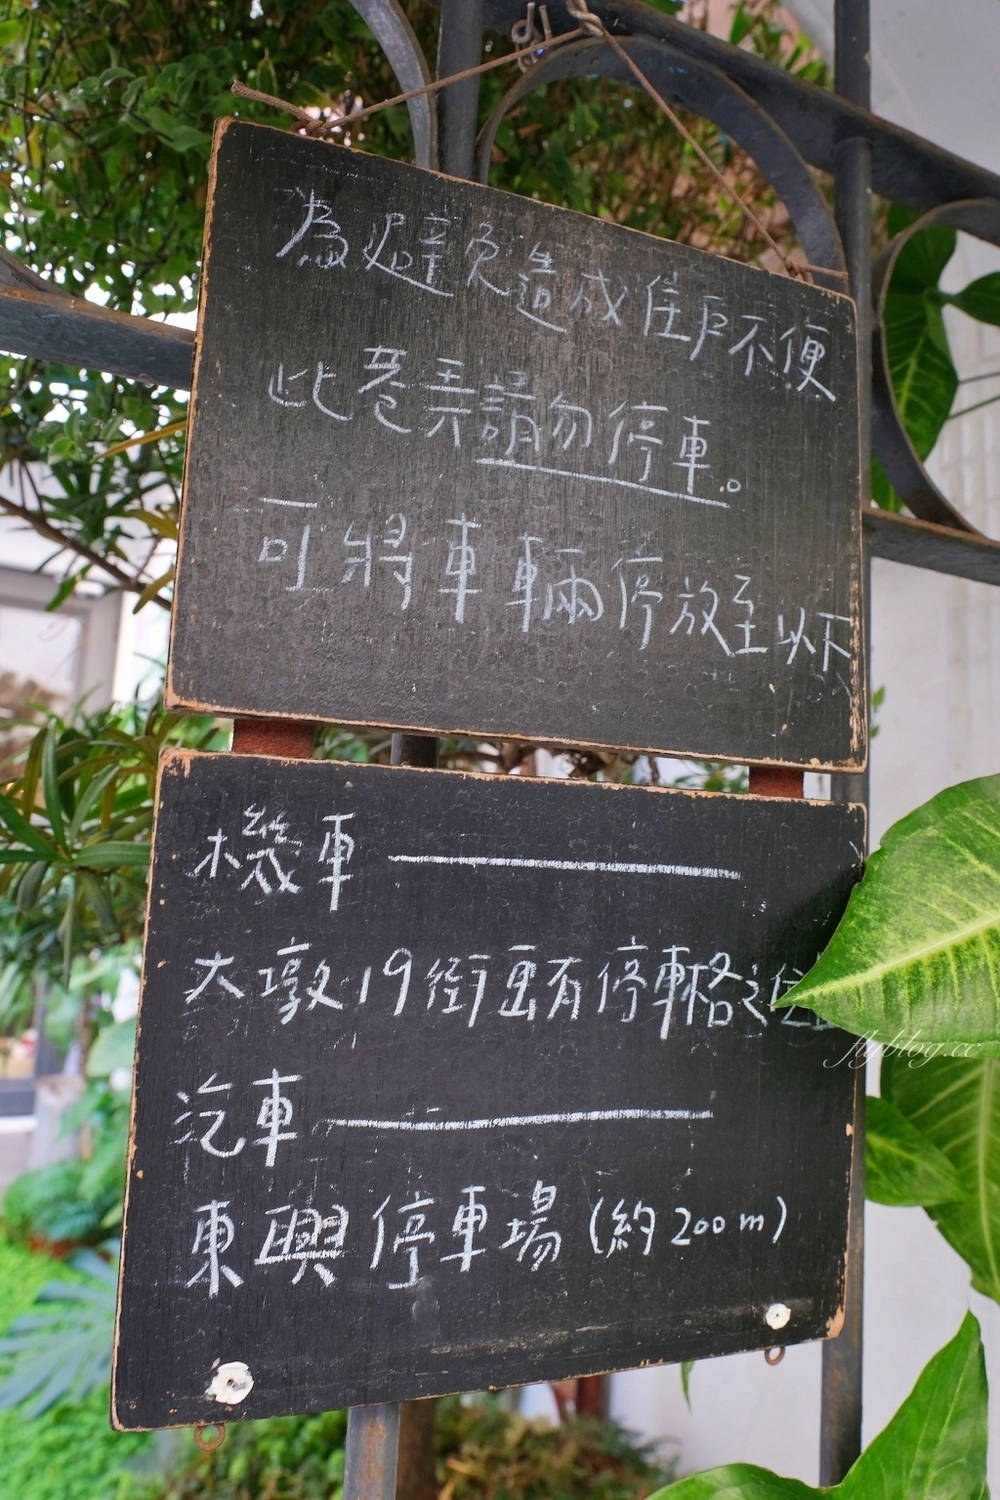 為避免造成住戶不便
此巷弄請勿停車。
可將車輛停放至以下
機車
大墩19街画有停車格之位
汽車
東興停車場(約200m)
flyblog.cc